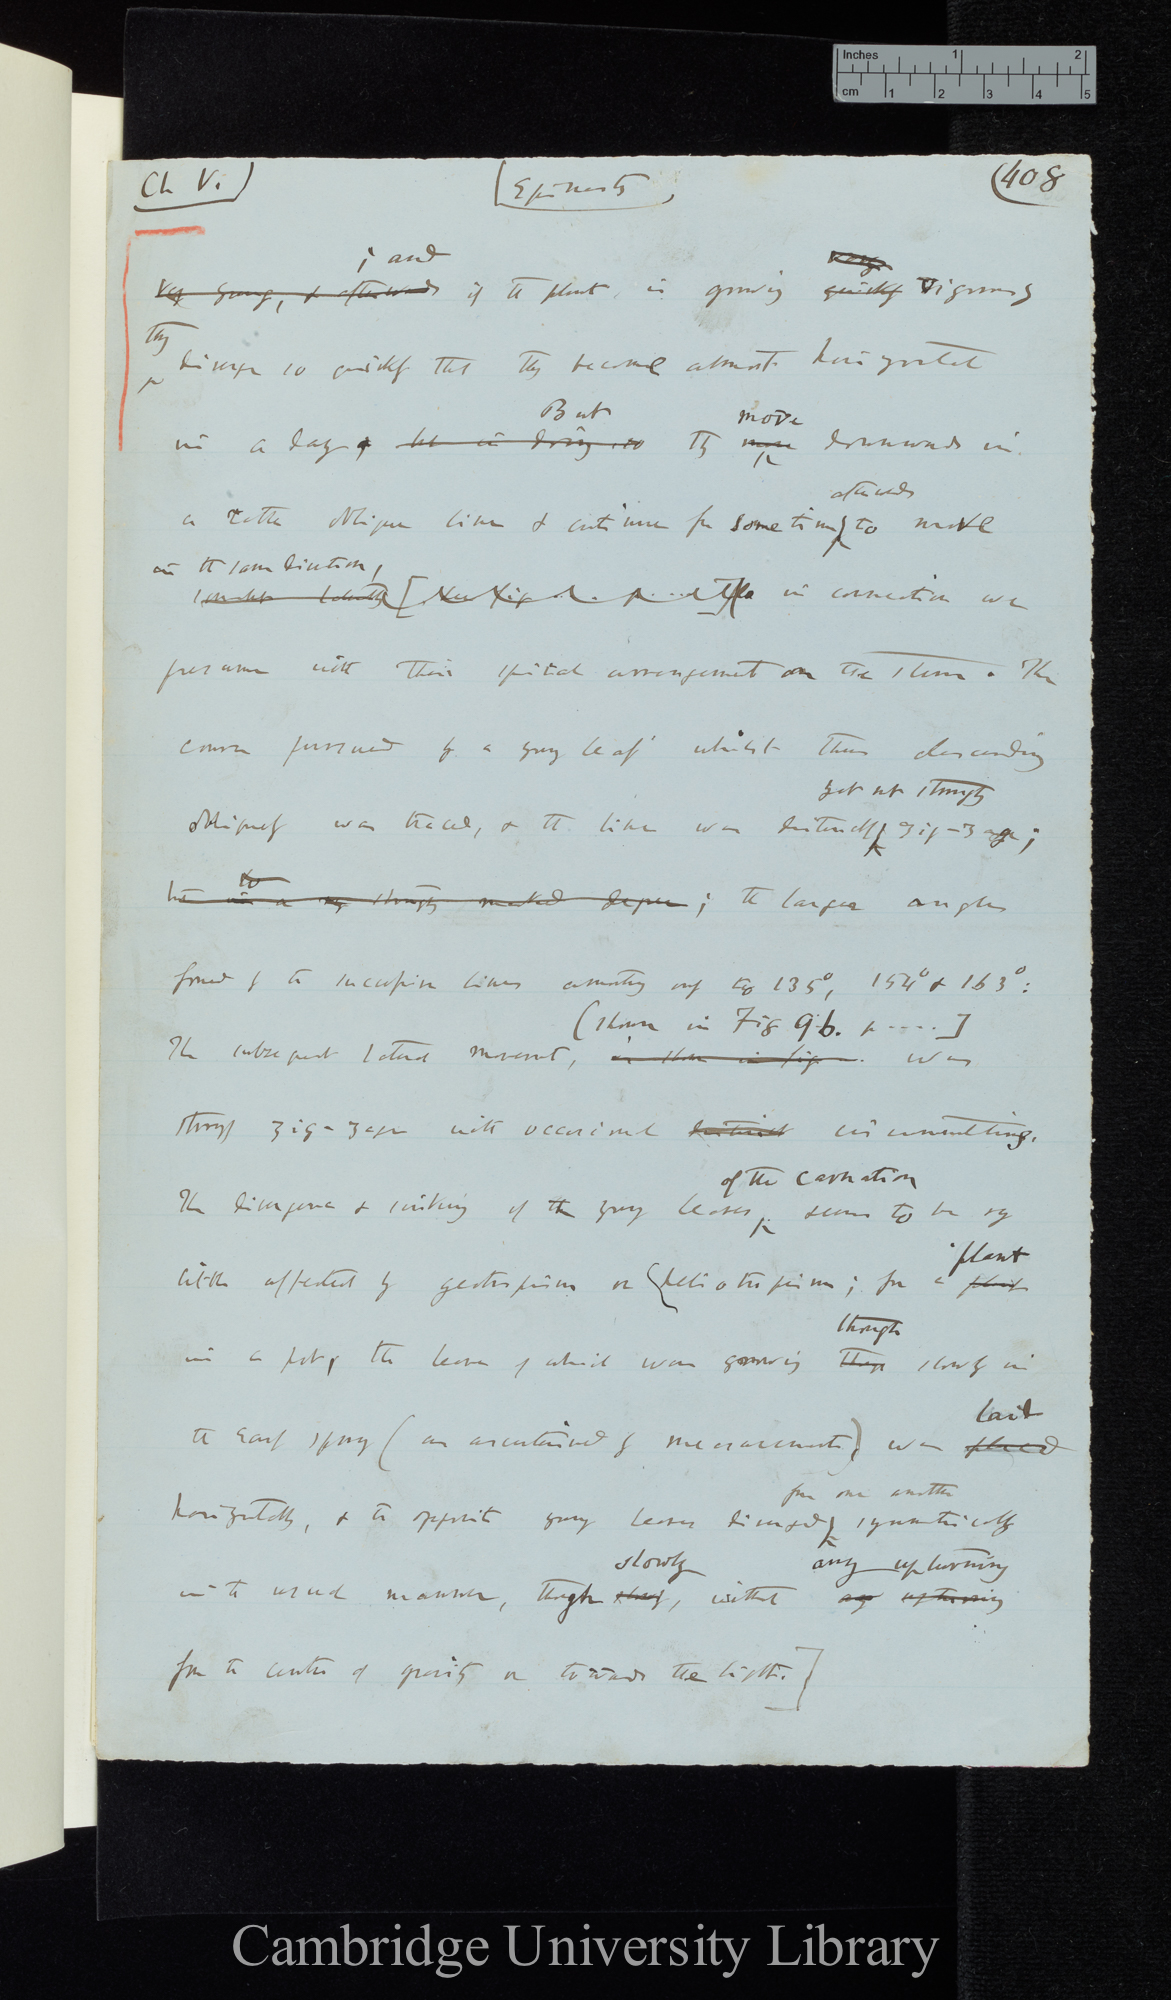 Inches 1 2
cm 1 2 3 4 5
Ch V.
Epinasty
(408
; and
very
very young, & afterwards if the plant is growing quickly vigorously
they
diverge so quickly that they become almost horizontal
But
move
in a day, but in doing so they move downwards in
afterwards
a rather oblique line & continue for some time to move
in the same direction,
in connection we
presume with their spiral arrangement on the stem. The
course pursued by a young leaf whilst thus descending
yet not strongly
obliquely was traced, & the line was distinctly zig-zag;
to
but in a very strongly marked degree; the larger angles
formed by the successive lines amounting only to 135°, 154° & 163°:
(shown in Fig 96. p ....]
The subsequent lateral movement, as shown in fig was
strongly zig-zag with occasional distinct circumnutting.
of the carnation
The divergence & sinking of the young leaves seems to be very
plant
little affected by geotropism or heliotropism; for a plant
though
in a pot, the leaves of which were growing though slowly in
laid
the early spring (as ascertained by measurement) was placed
from one another
horizontally, & the opposite young leaves diverged symmetrically
slowly
any upturning
in the usual manner, though slowly, without any upturning
from the centre of gravity or towards the light.]
Cambridge University Library